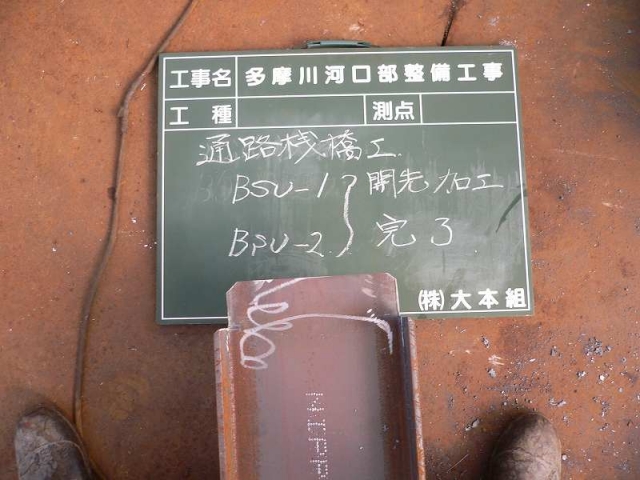 工事名 多摩川河口部整備工事
工種 測点
通路桟橋工
BSU-1 開先加工
BPU-2 完了
(株)大本組